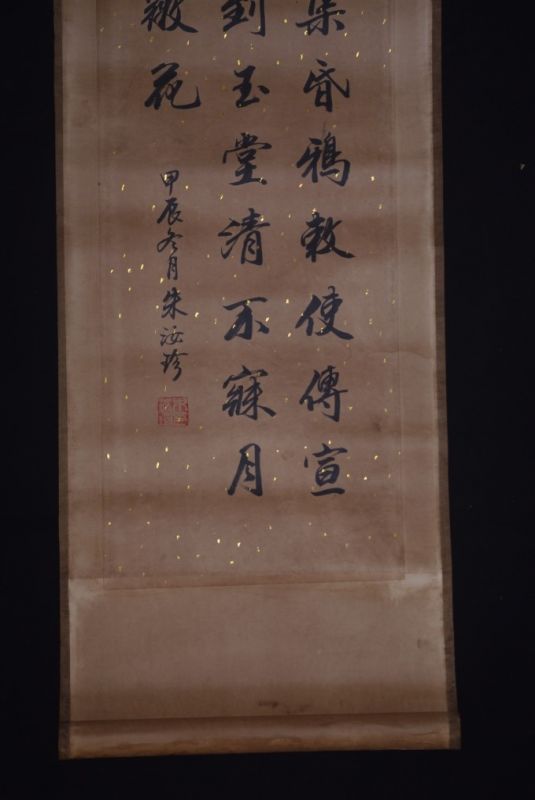 集昏鴉敕使傳宣
到玉堂清不寐月
薇花
甲辰冬月朱汝珍